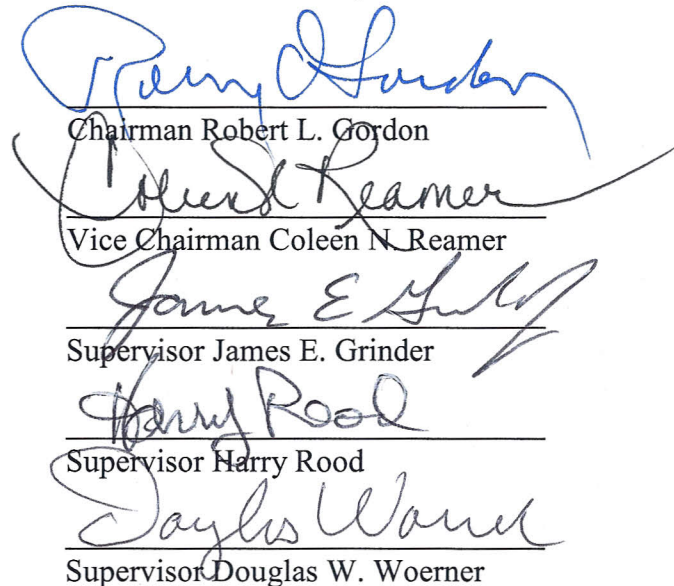 Chairman Robert L. Gordon
Coleen N Reamer
Vice Chairman Coleen N. Reamer
James E
Supervisor James E. Grinder
Harry Rood
Supervisor Harry Rood
Douglas
Supervisor Douglas W. Woerner